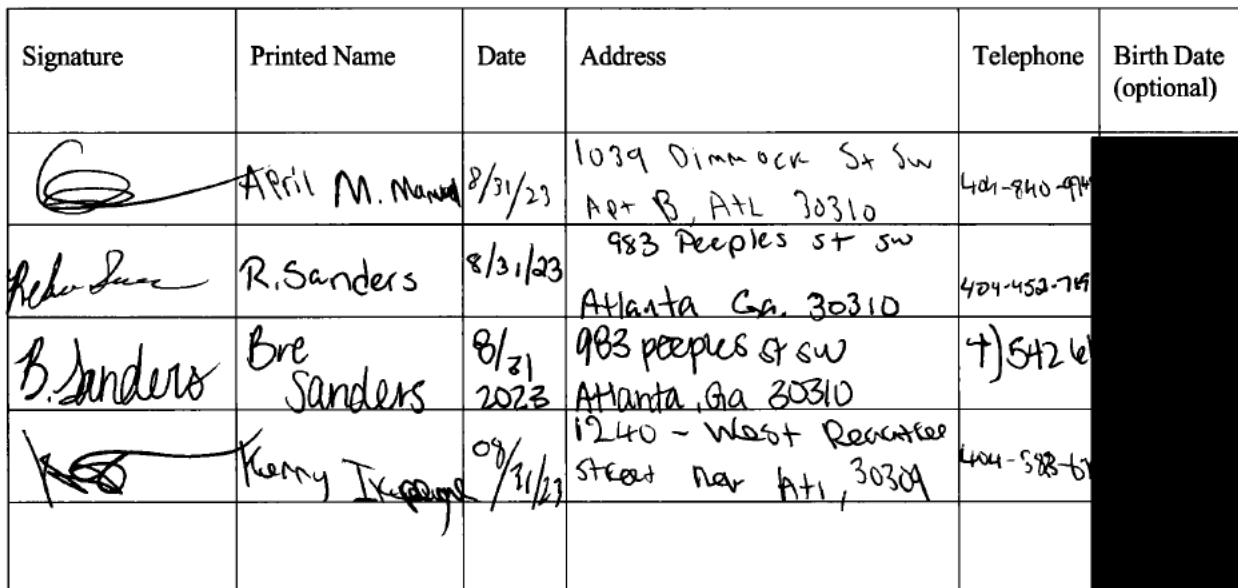 Signature Printed Name Date Address Telephone Birth Date
(optional)
April M. 8/31/23 1039 Dimmock St Sw
Apt B, AtL 30310
404-840-
R. Sanders 8/31/23 983 Peeples st sw
Atlanta Ga. 30310
404-452-
B. Sanders Bre
Sanders 8/31
2023 983 peeples st sw
Atlanta, Ga 30310
Kerry 08/31/23 1240 - West
street Atl, 30309
404-588-